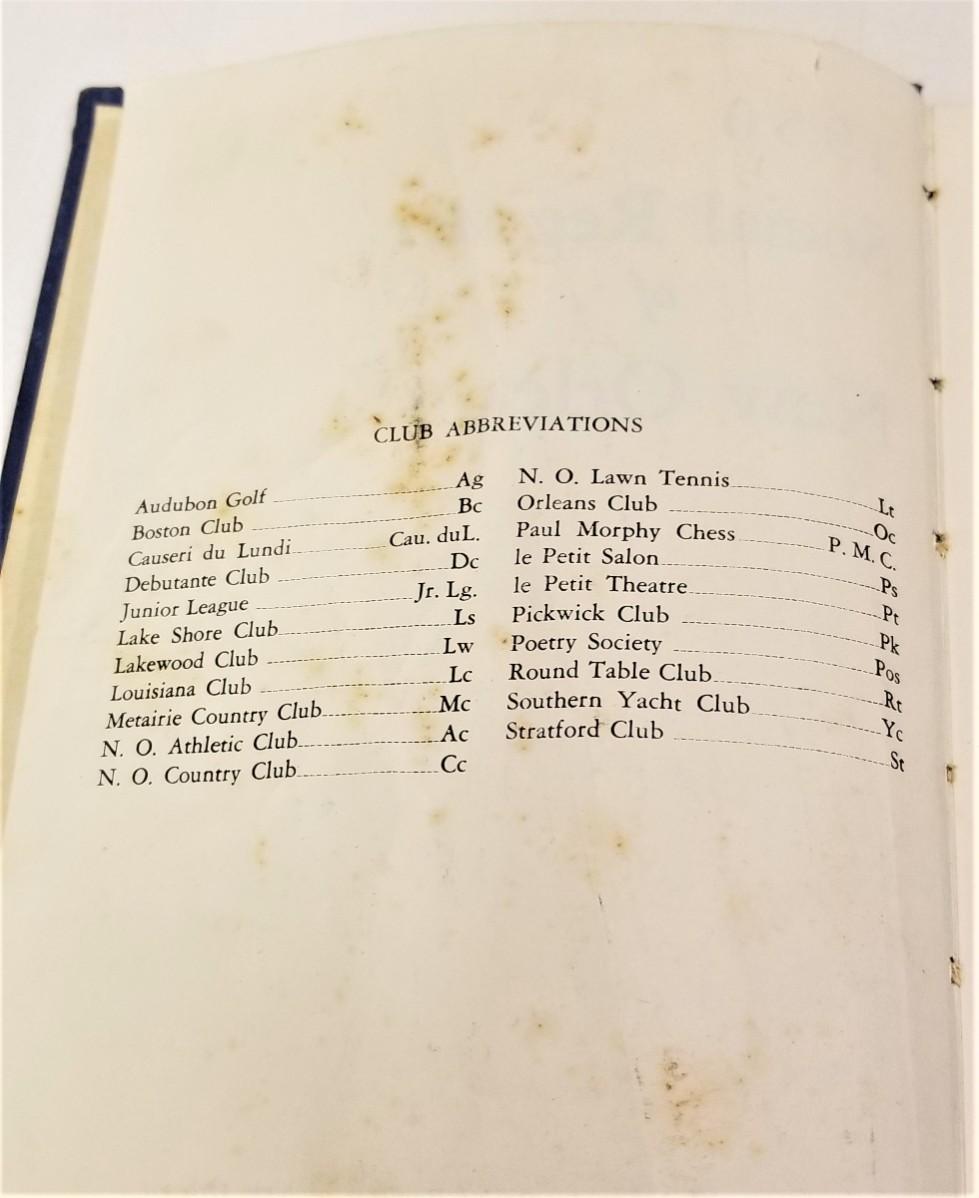 CLUB ABBREVIATIONS
Audubon Golf Ag
Boston Club Bc
Causeri du Lundi Cau. duL.
Debutante Club Dc
Junior League Jr. Lg.
Lake Shore Club Ls
Lakewood Club Lw
Louisiana Club Lc
Metairie Country Club Mc
N. O. Athletic Club Ac
N. O. Country Club Cc
N. O. Lawn Tennis Lt
Orleans Club Oc
Paul Morphy Chess P. M. C.
le Petit Salon Ps
le Petit Theatre Pt
Pickwick Club Pk
Poetry Society Pos
Round Table Club Rt
Southern Yacht Club Yc
Stratford Club St